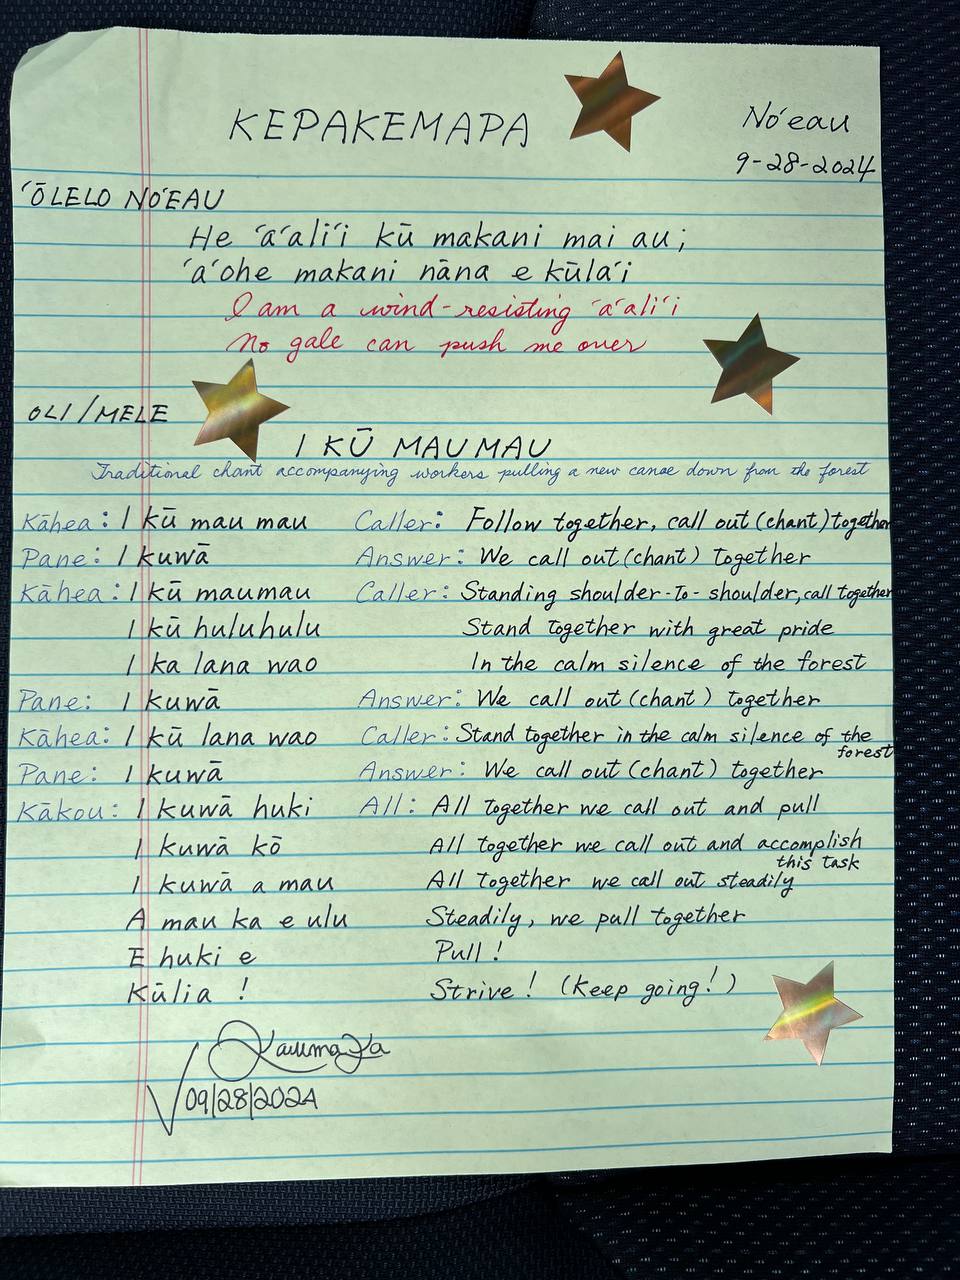 KEPAKEMAPA
Noʻeau
9-28-2024
ʻŌLELO NOʻEAU
He ʻaʻaliʻi kū makani mai au;
ʻaʻohe makani nāna e kūlaʻi
I am a wind-resisting ʻaʻaliʻi
No gale can push me over
OLI/MELE
I KŪ MAUMAU
Traditional chant accompanying workers pulling a new canoe down from the forest
Kāhea: I kū mau mau Caller: Follow together, call out (chant) together
Pane: I kuwā Answer: We call out (chant) together
Kāhea: I kū maumau Caller: Standing shoulder-to-shoulder, call together
I kū huluhulu Stand together with great pride
I ka lana wao In the calm silence of the forest
Pane: I kuwā Answer: We call out (chant) together
Kāhea: I kū lana wao Caller: Stand together in the calm silence of the
forest
Pane: I kuwā Answer: We call out (chant) together
Kākou: I kuwā huki All: All together we call out and pull
I kuwā kō All together we call out and accomplish
this task
I kuwā a mau All together we call out steadily
A mau ka e ulu Steadily, we pull together
E huki e Pull!
Kūlia! Strive! (Keep going!)
09/28/2024